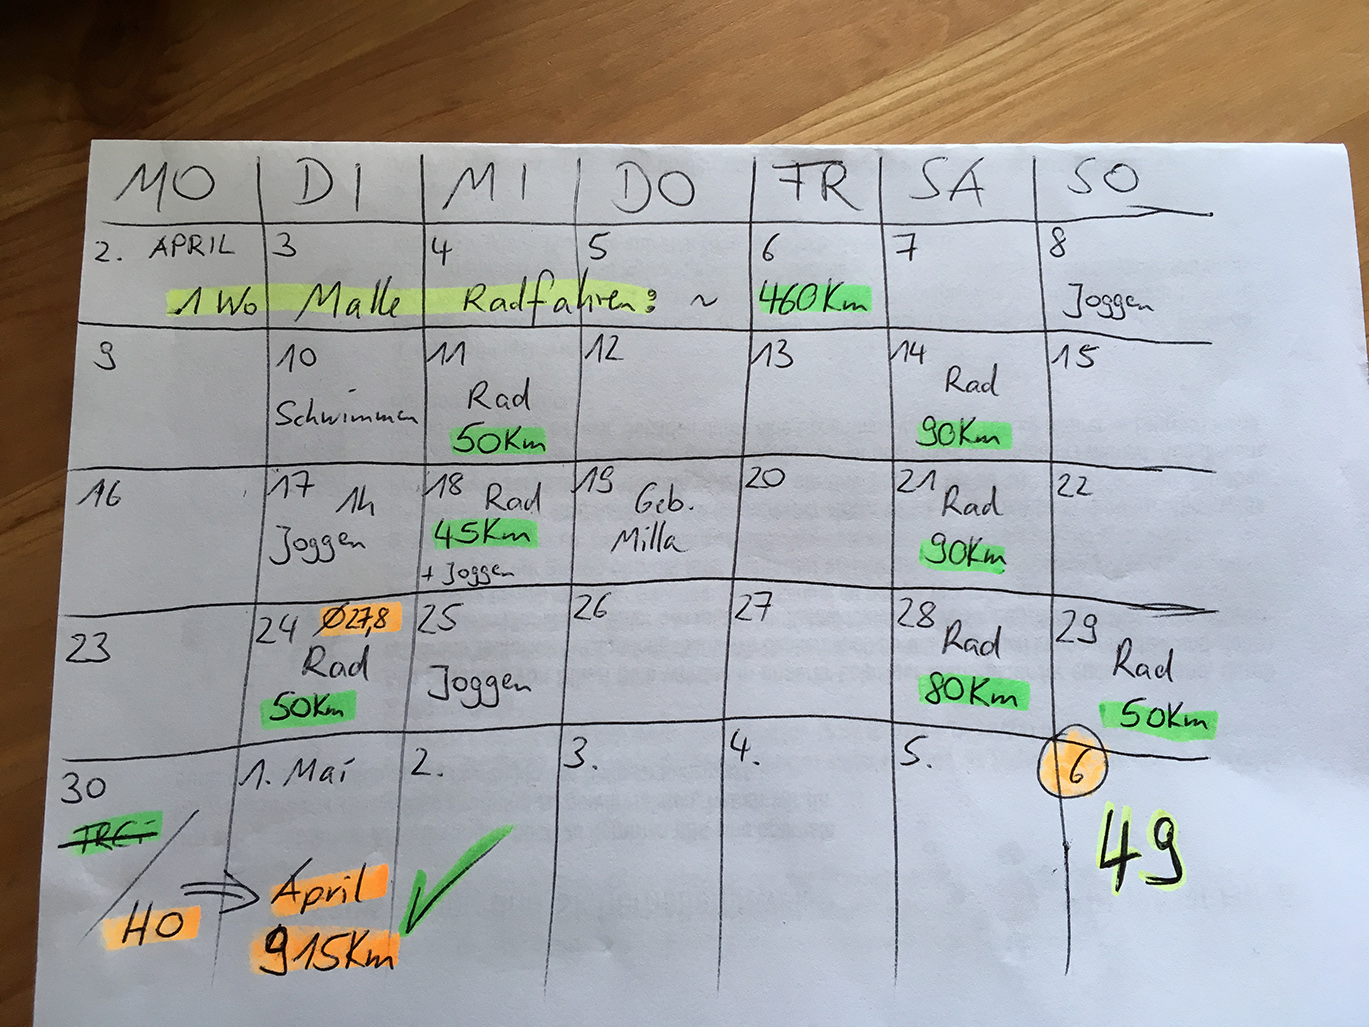 MO DI MI DO FR SA SO
2. APRIL 3 4 5 6 7 8
1 Wo Malle Radfahren: ~ 460Km
Joggen
9 10 11 12 13 14 15
Schwimmen
Rad
50Km
Rad
90Km
16 17 18 19 20 21 22
1h
Joggen
Rad
45Km
+ Joggen
Geb.
Milla
Rad
90Km
23 24 25 26 27 28 29
Ø27,8
Rad
50Km
Joggen
Rad
80Km
Rad
50Km
30 1. Mai 2. 3. 4. 5. 6
HO ⇒ April
915Km ✓
49